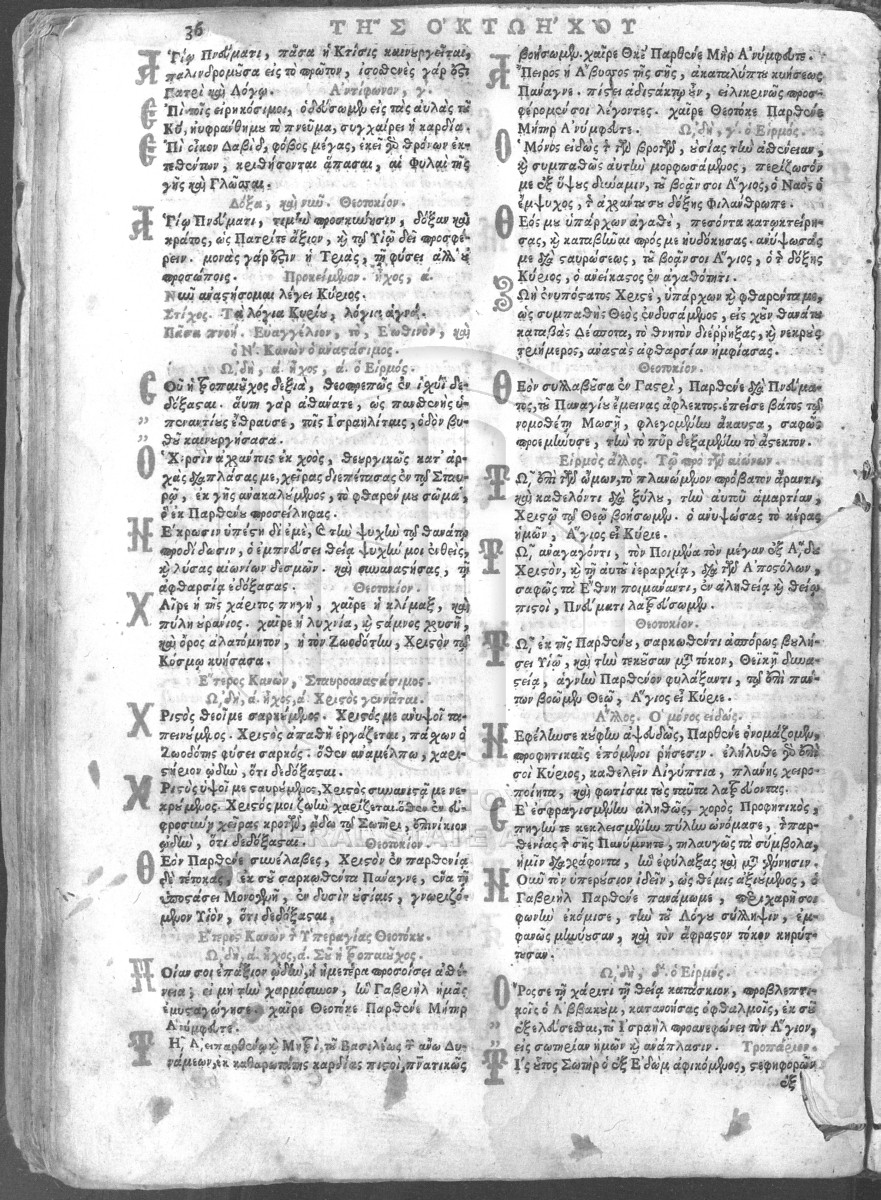 36
ΤΗ͂Σ ὈΚΤΩΉΧΟΥ
Ἁγίῳ Πνεύματι, πᾶσα ἡ Κτίσις καινουργεῖται,
παλινδρομοῦσα εἰς τὸ πρῶτον, ἰσοσθενὲς γάρ ἐστι
Πατρὶ καὶ Λόγῳ. Ἀντίφωνον, γ.
Ἐπὶ τοῖς εἰρηκόσι μοι, ὁδεύσωμεν εἰς τὰς αὐλὰς τοῦ
Κυ, ηὐφράνθη μου τὸ πνεῦμα, συγχαίρει ἡ καρδία.
Ἐπὶ οἶκον Δαβὶδ, φόβος μέγας, ἐκεῖ γὰρ θρόνων ἐκ-
τεθέντων, κριθήσονται ἅπασαι, αἱ Φυλαὶ τῆς
γῆς καὶ Γλῶσσαι.
Δόξα, καὶ νῦν. Θεοτοκίον.
Ἁγίῳ Πνεύματι, τιμὴν προσκύνησιν, δόξαν καὶ
κράτος, ὡς Πατρί τε ἄξιον, καὶ τῷ Υἱῷ δεῖ προσφέ-
ρειν. μονὰς γάρ ἐστιν ἡ Τριὰς, τῇ φύσει ἀλλ' οὐ
προσώποις. Προκείμενον. ἦχος, ά.
Νῦν ἀναστήσομαι λέγει Κύριος.
Στίχος. Τὰ λόγια Κυρίου, λόγια ἁγνά.
Πᾶσα πνοή. Εὐαγγέλιον, τὸ, Ἑωθινὸν, καὶ
ὁ Ν. Κανὼν ὁ ἀναστάσιμος.
ᾨδὴ, ά. ἦχος, ά. ὁ Εἱρμός.
Σοῦ ἡ τροπαιοῦχος δεξιὰ, θεοπρεπῶς ἐν ἰσχύϊ δε-
δόξασται. αὕτη γὰρ ἀθάνατε, ὡς πανσθενὴς ὑ-
πεναντίους ἔθραυσε, τοῖς Ἰσραηλίταις, ὁδὸν βυ-
θοῦ καινουργήσασα.
Ὁ Χερσὶν ἀχράντοις ἐκ χοὸς, θεουργικῶς κατ' ἀρ-
χὰς διαπλάσας με, χεῖρας διεπέτασας ἐν τῷ Σταυ-
ρῷ, ἐκ γῆς ἀνακαλούμενος, τὸ φθαρέν μου σῶμα,
ὃ ἐκ Παρθένου προσείληφας.
Νέκρωσιν ὑπέστη δι' ἐμὲ, καὶ τὴν ψυχὴν τῷ θανάτῳ
προδίδωσιν, ὁ ἐμπνεύσει θείᾳ ψυχήν μοι ἐνθεὶς,
καὶ λύσας αἰωνίων δεσμῶν. καὶ συναναστήσας, τῇ
ἀφθαρσίᾳ ἐδόξασας. Θεοτοκίον.
Χαῖρε ἡ τῆς χάριτος πηγὴ, χαῖρε ἡ κλίμαξ, καὶ
πύλη οὐράνιος. χαῖρε ἡ λυχνία, καὶ στάμνος χρυσῆ,
καὶ ὄρος ἀλατόμητον, ἡ τὸν Ζωοδότην, Χριστὸν τῷ
Κόσμῳ κυήσασα.
Ἕτερος Κανὼν, Σταυροαναστάσιμος.
ᾨδὴ, ά. ἦχος, ά. Χριστὸς γεννᾶται.
Χριστὸς θεοῖ με σαρκούμενος. Χριστός με ἀνυψοῖ τα-
πεινούμενος. Χριστὸς ἀπαθῆ ἐργάζεται, πάσχων ὁ
Ζωοδότης φύσει σαρκός. ὅθεν ἀναμέλπω, χαρι-
στήριον ᾠδὴν, ὅτι δεδόξασται.
Χριστὸς ὑψοῖ με σταυρούμενος, Χριστὸς συνανιστᾷ με νε-
κρούμενος. Χριστός μοι ζωὴν χαρίζεται. ὅθεν ἐν εὐ-
φροσύνῃ χεῖρας κροτῶν, ᾄδω τῷ Σωτῆρι, ἐπινίκιον
ᾠδὴν, ὅτι δεδόξασται. Θεοτοκίον.
Θεὸν Παρθένε συνέλαβες, Χριστὸν ἐν παρθενίᾳ
δὲ τέτοκας, ἐκ σοῦ σαρκωθέντα Πάναγνε, ἕνα τῇ
ὑποστάσει Μονογενῆ, ἐν δυσὶν οὐσίαις, γνωριζό-
μενον Υἱὸν, ὅτι δεδόξασται.
Ἕτερος Κανὼν τῆς Ὑπεραγίας Θεοτόκου.
ᾨδὴ, ά. ἦχος, ά. Σοῦ ἡ τροπαιοῦχος.
Ποίαν σοι ἐπάξιον ᾠδὴν, ἡ ἡμετέρα προσοίσει ἀσθέ-
νεια; εἰ μὴ τὴν χαρμόσυνον, ἣν Γαβριὴλ ἡμᾶς
ἐμυσταγώγησε. χαῖρε Θεοτόκε Παρθένε Μῆτερ
Ἀνύμφευτε.
Τῇ Ἀειπαρθένῳ καὶ Μητρὶ, τοῦ Βασιλέως τῶν ἄνω Δυ-
νάμεων, ἐκ καθαρωτάτης καρδίας πιστοὶ, πνατικῶς
βοήσωμεν. χαῖρε Θκε Παρθένε Μῆρ Ἀνύμφευτε.
Ἄπειρος ἡ Ἄβυσσος τῆς σῆς, ἀκαταλήπτου κυήσεως
Πάναγνε. πίστει ἀδιστάκτῳ οὖν, εἰλικρινῶς προσ-
φέρομέν σοι λέγοντες. χαῖρε Θεοτόκε Παρθένε
Μῆτερ Ἀνύμφευτε. ᾨδὴ, γ. ὁ Εἱρμός.
Ὁ Μόνος εἰδὼς τῆς τῶν βροτῶν, οὐσίας τὴν ἀσθένειαν,
καὶ συμπαθῶς αὐτὴν μορφωσάμενος, περίζωσόν
με ἐξ ὕψους δύναμιν, τοῦ βοᾶν σοι Ἅγιος, ὁ Ναὸς ὁ
ἔμψυχος, τῆς ἀχράντου σου δόξης Φιλάνθρωπε.
Θεός μου ὑπάρχων ἀγαθὲ, πεσόντα κατῳκτείρη-
σας, καὶ καταβῆναι πρός με ηὐδόκησας. ἀνύψωσάς
με διὰ σταυρώσεως, τοῦ βοᾶν σοι Ἅγιος, ὁ τῆς δόξης
Κύριος, ὁ ἀνείκαστος ἐν ἀγαθότητι.
Ζωὴ ἐνυπόστατος Χριστὲ, ὑπάρχων καὶ φθαρέντα με,
ὡς συμπαθὴς Θεὸς ἐνδυσάμενος, εἰς χοῦν θανάτου
καταβὰς Δέσποτα, τὸ θνητὸν διέρρηξας, καὶ νεκροὺς
τριήμερος, ἀναστὰς ἀφθαρσίαν ἠμφίασας.
Θεοτοκίον.
Θεὸν συλλαβοῦσα ἐν Γαστρὶ, Παρθένε διὰ Πνεύμα-
τος, τοῦ Παναγίου ἔμεινας ἄφλεκτος. ἐπεί σε βάτος τῷ
νομοθέτῃ Μωσῇ, φλεγομένη ἄκαυστα, σαφῶς
προεμήνυσε, τὴν τὸ πῦρ δεξαμένην τὸ ἄστεκτον.
Εἱρμὸς ἄλλος. Τῷ πρὸ τῶν αἰώνων.
Τῷ, ἐπὶ τῶν ὤμων, τὸ πλανώμενον πρόβατον ἄραντι,
καὶ καθελόντι διὰ ξύλου, τὴν αὐτοῦ ἁμαρτίαν,
Χριστῷ τῷ Θεῷ βοήσωμεν. ὁ ἀνυψώσας τὸ κέρας
ἡμῶν, Ἅγιος εἶ Κύριε.
Τῷ, ἀναγαγόντι, τὸν Ποιμένα τὸν μέγαν ἐξ ᾍδου
Χριστὸν, καὶ τῇ αὐτοῦ ἱεραρχίᾳ, διὰ τῶν Ἀποστόλων,
σαφῶς τὰ Ἔθνη ποιμάναντι, ἐν ἀληθείᾳ καὶ θείῳ
πιστοὶ, Πνεύματι λατρεύσωμεν.
Θεοτοκίον.
Τῷ, ἐκ τῆς Παρθένου, σαρκωθέντι ἀσπόρως βουλή-
σει Υἱῷ, καὶ τὴν τεκοῦσαν μετὰ τόκον, Θεϊκῇ δυνα-
στείᾳ, ἁγνὴν Παρθένον φυλάξαντι, τῷ ἐπὶ πάν-
των βοῶμεν Θεῷ, Ἅγιος εἶ Κύριε.
Ἄλλος. Ὁ μόνος εἰδώς.
Νεφέλην σε κούφην ἀψευδῶς, Παρθένε ὀνομάζομεν,
προφητικαῖς ἑπόμενοι ῥήσεσιν. ἐλήλυθε γὰρ ἐπὶ
σοὶ Κύριος, καθελεῖν Αἰγύπτια, πλάνης χειρο-
ποίητα, καὶ φωτίσαι τοὺς ταῦτα λατρεύοντας.
Σὲ ἐσφραγισμένην ἀληθῶς, χορὸς Προφητικὸς,
πηγήν τε κεκλεισμένην πύλην ὠνόμασε, τῆς παρ-
θενίας τῆς σῆς Πανύμνητε, τηλαυγῶς τὰ σύμβολα,
ἡμῖν διαγράφοντα, ἣν ἐφύλαξας καὶ μετὰ γέννησιν.
Νοῦν τὸν ὑπερούσιον ἰδεῖν, ὡς θέμις ἀξιούμενος, ὁ
Γαβριὴλ Παρθένε πανάμωμε, περιχαρῆ σοι
φωνὴν ἐκόμισε, τὴν τοῦ Λόγου σύλληψιν, ἐμ-
φανῶς μηνύουσαν, καὶ τὸν ἄφραστον τόκον κηρύτ-
τουσαν.
ᾨδὴ, δ. ὁ Εἱρμός.
Ὄρος σε τῇ χάριτι τῇ θείᾳ κατάσκιον, προβλεπτι-
κοῖς ὁ Ἀββακοὺμ, κατανοήσας ὀφθαλμοῖς, ἐκ σοῦ
ἐξελεύσεσθαι, τοῦ Ἰσραὴλ προανεφώνει τὸν Ἅγιον,
εἰς σωτηρίαν ἡμῶν καὶ ἀνάπλασιν. Τροπάριον.
Τίς οὗτος Σωτὴρ ὁ ἐξ Ἐδὼμ ἀφικόμενος, στεφηφορῶν
ἐξ